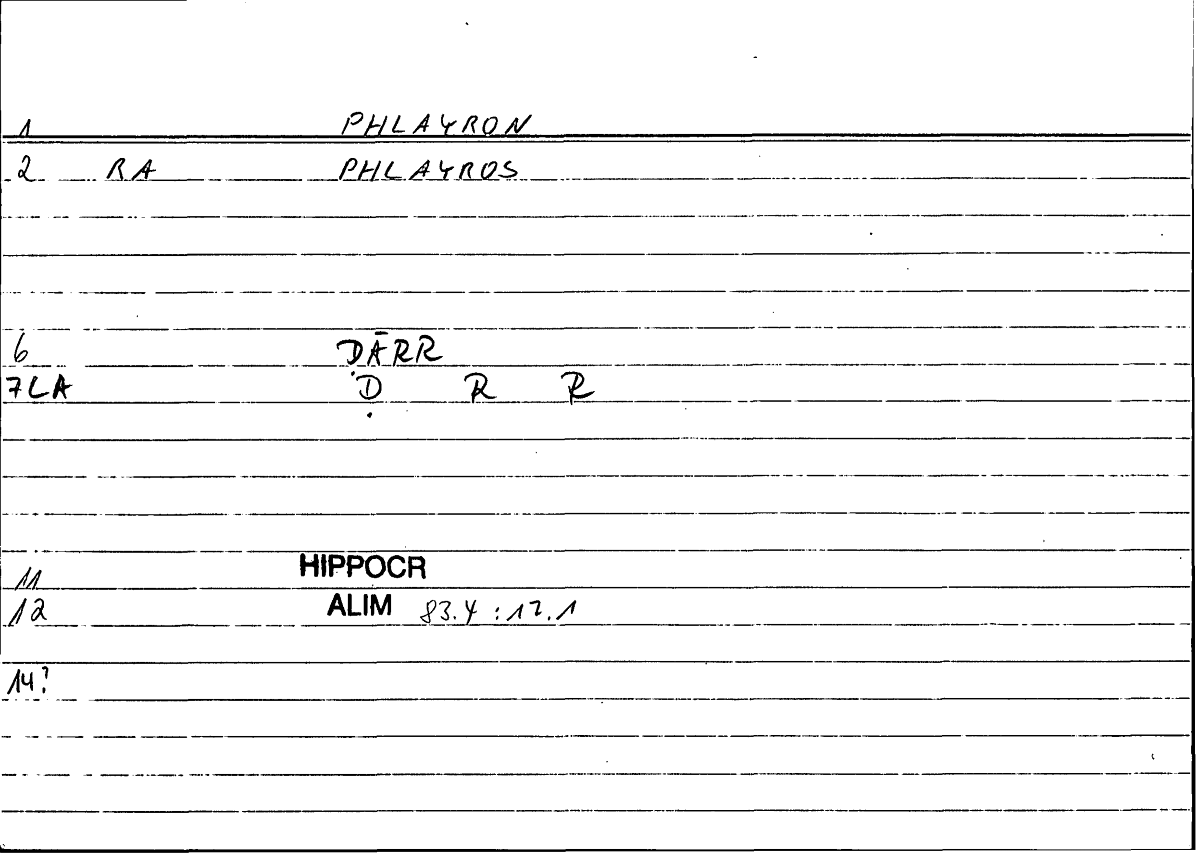 1 PHLAYRON
2 RA PHLAYROS
6 ḌĀRR
7LA Ḍ R R
11 HIPPOCR
12 ALIM 83.4 : 17.1
14?